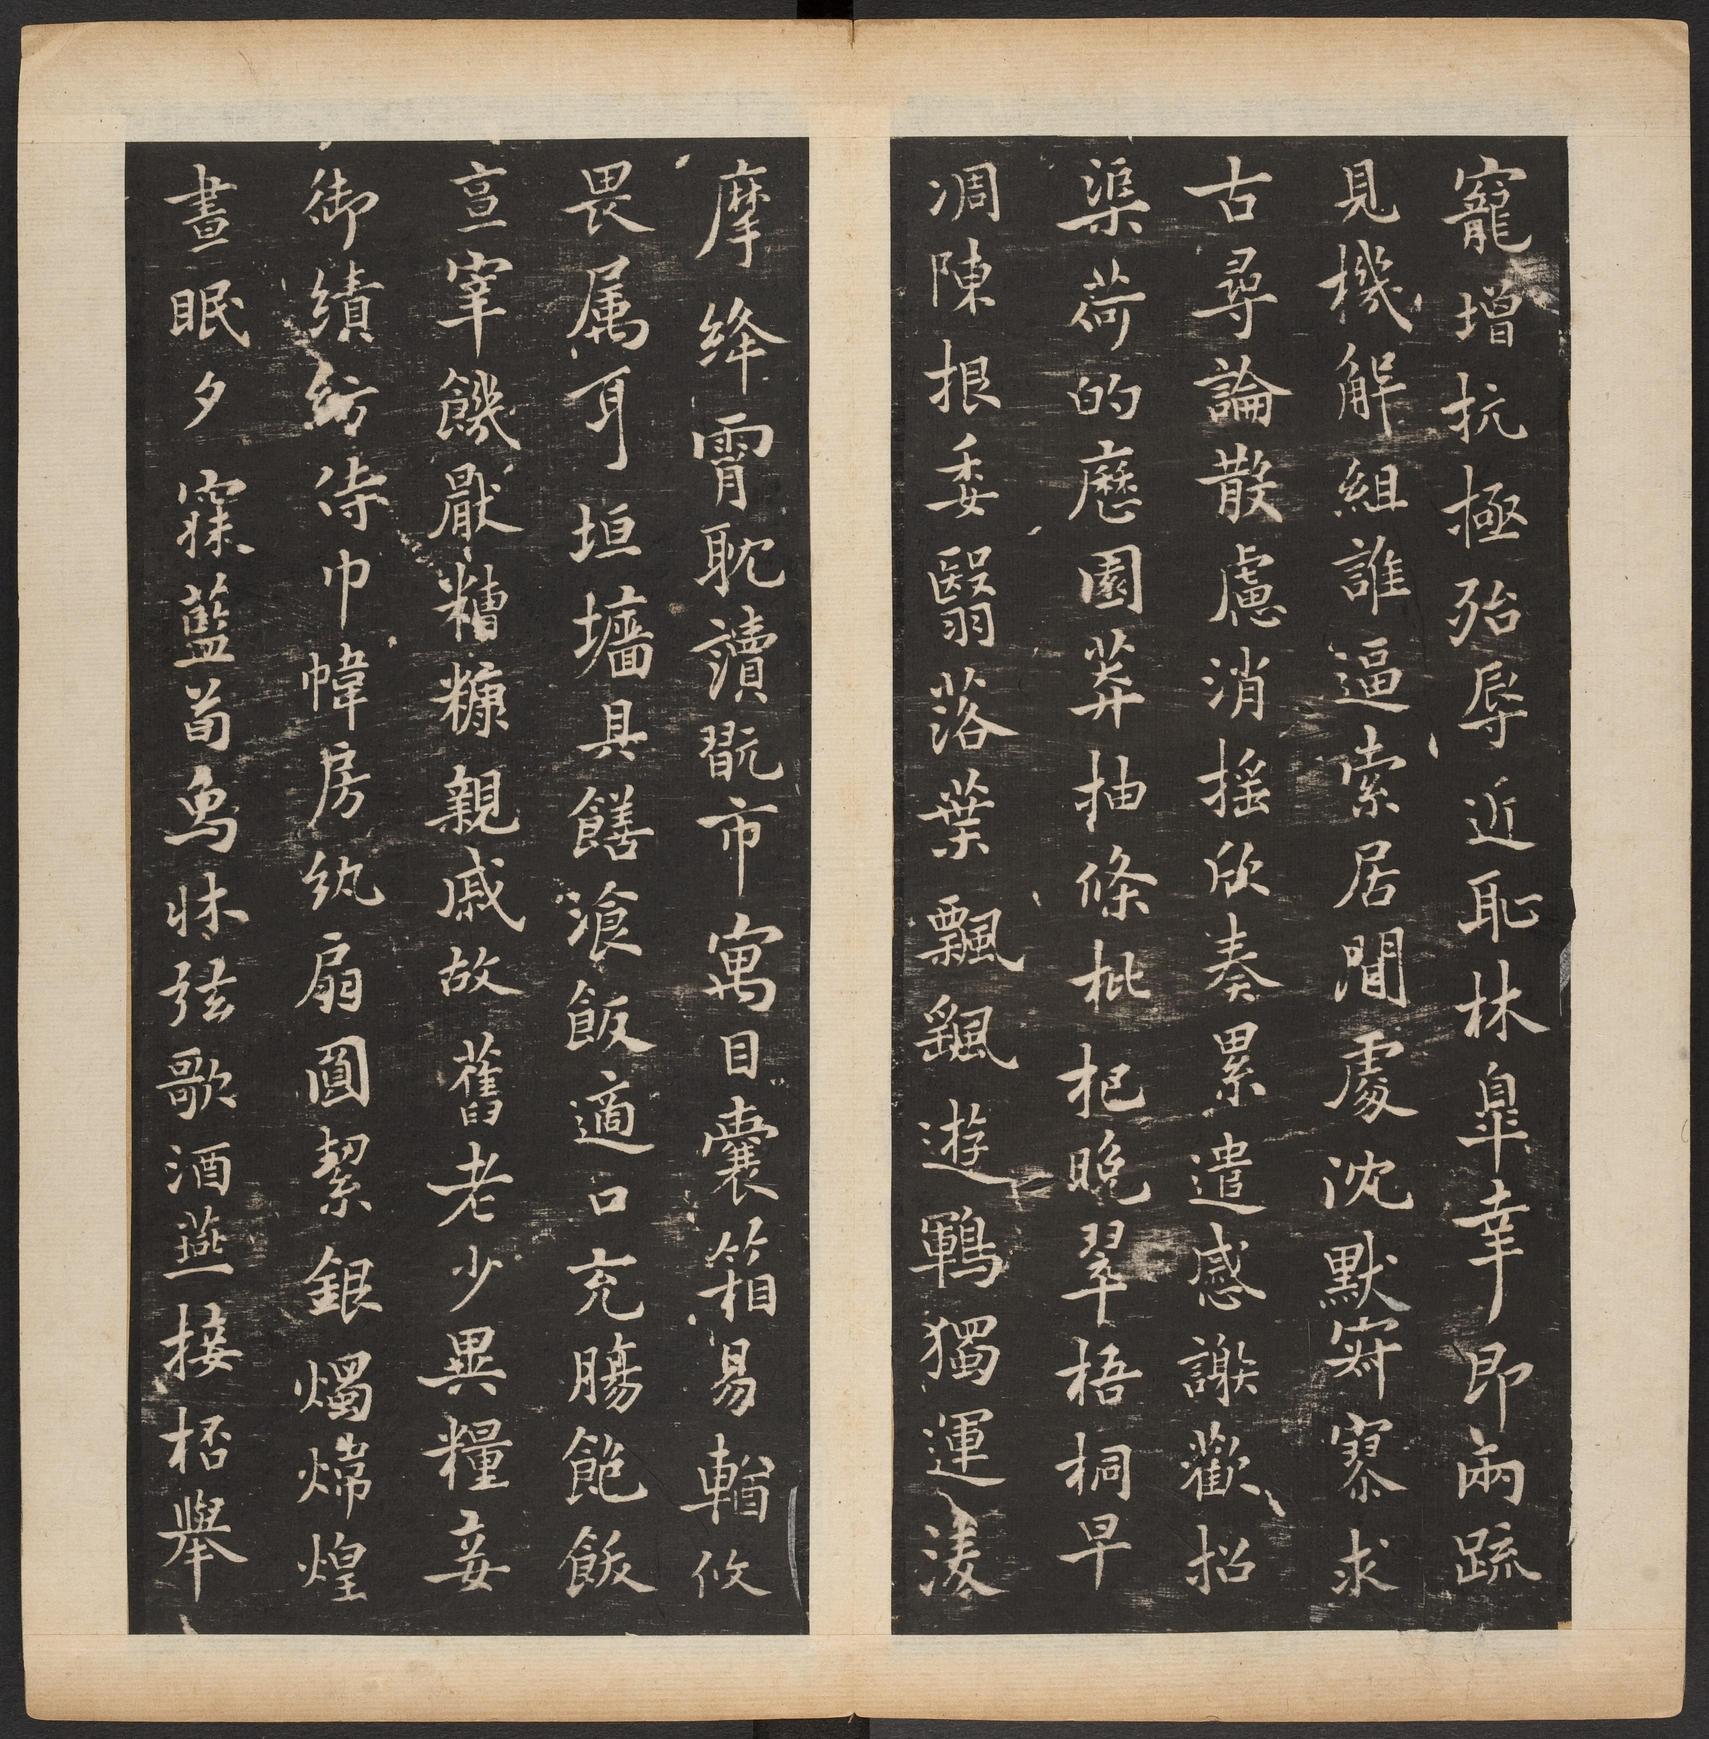 寵增抗極殆辱近恥林皐幸即兩疏
見機解組誰逼索居閒處沈默寂寥求
古尋論散慮消搖欣奏累遣感謝歡招
渠荷的歷園莽抽條枇杷晚翠梧桐早
凋陳根委翳落葉飄颻遊鵾獨運淩
摩絳霄耽讀翫市寓目囊箱易輶攸
畏属耳垣墻具饍飡飯適口充腸飽飫
亯宰饑厭糟糠親戚故舊老少異糧妾
御績紡侍巾幃房紈扇圓絜銀燭煒煌
晝眠夕寐藍荀象牀弦歌酒燕接桮舉